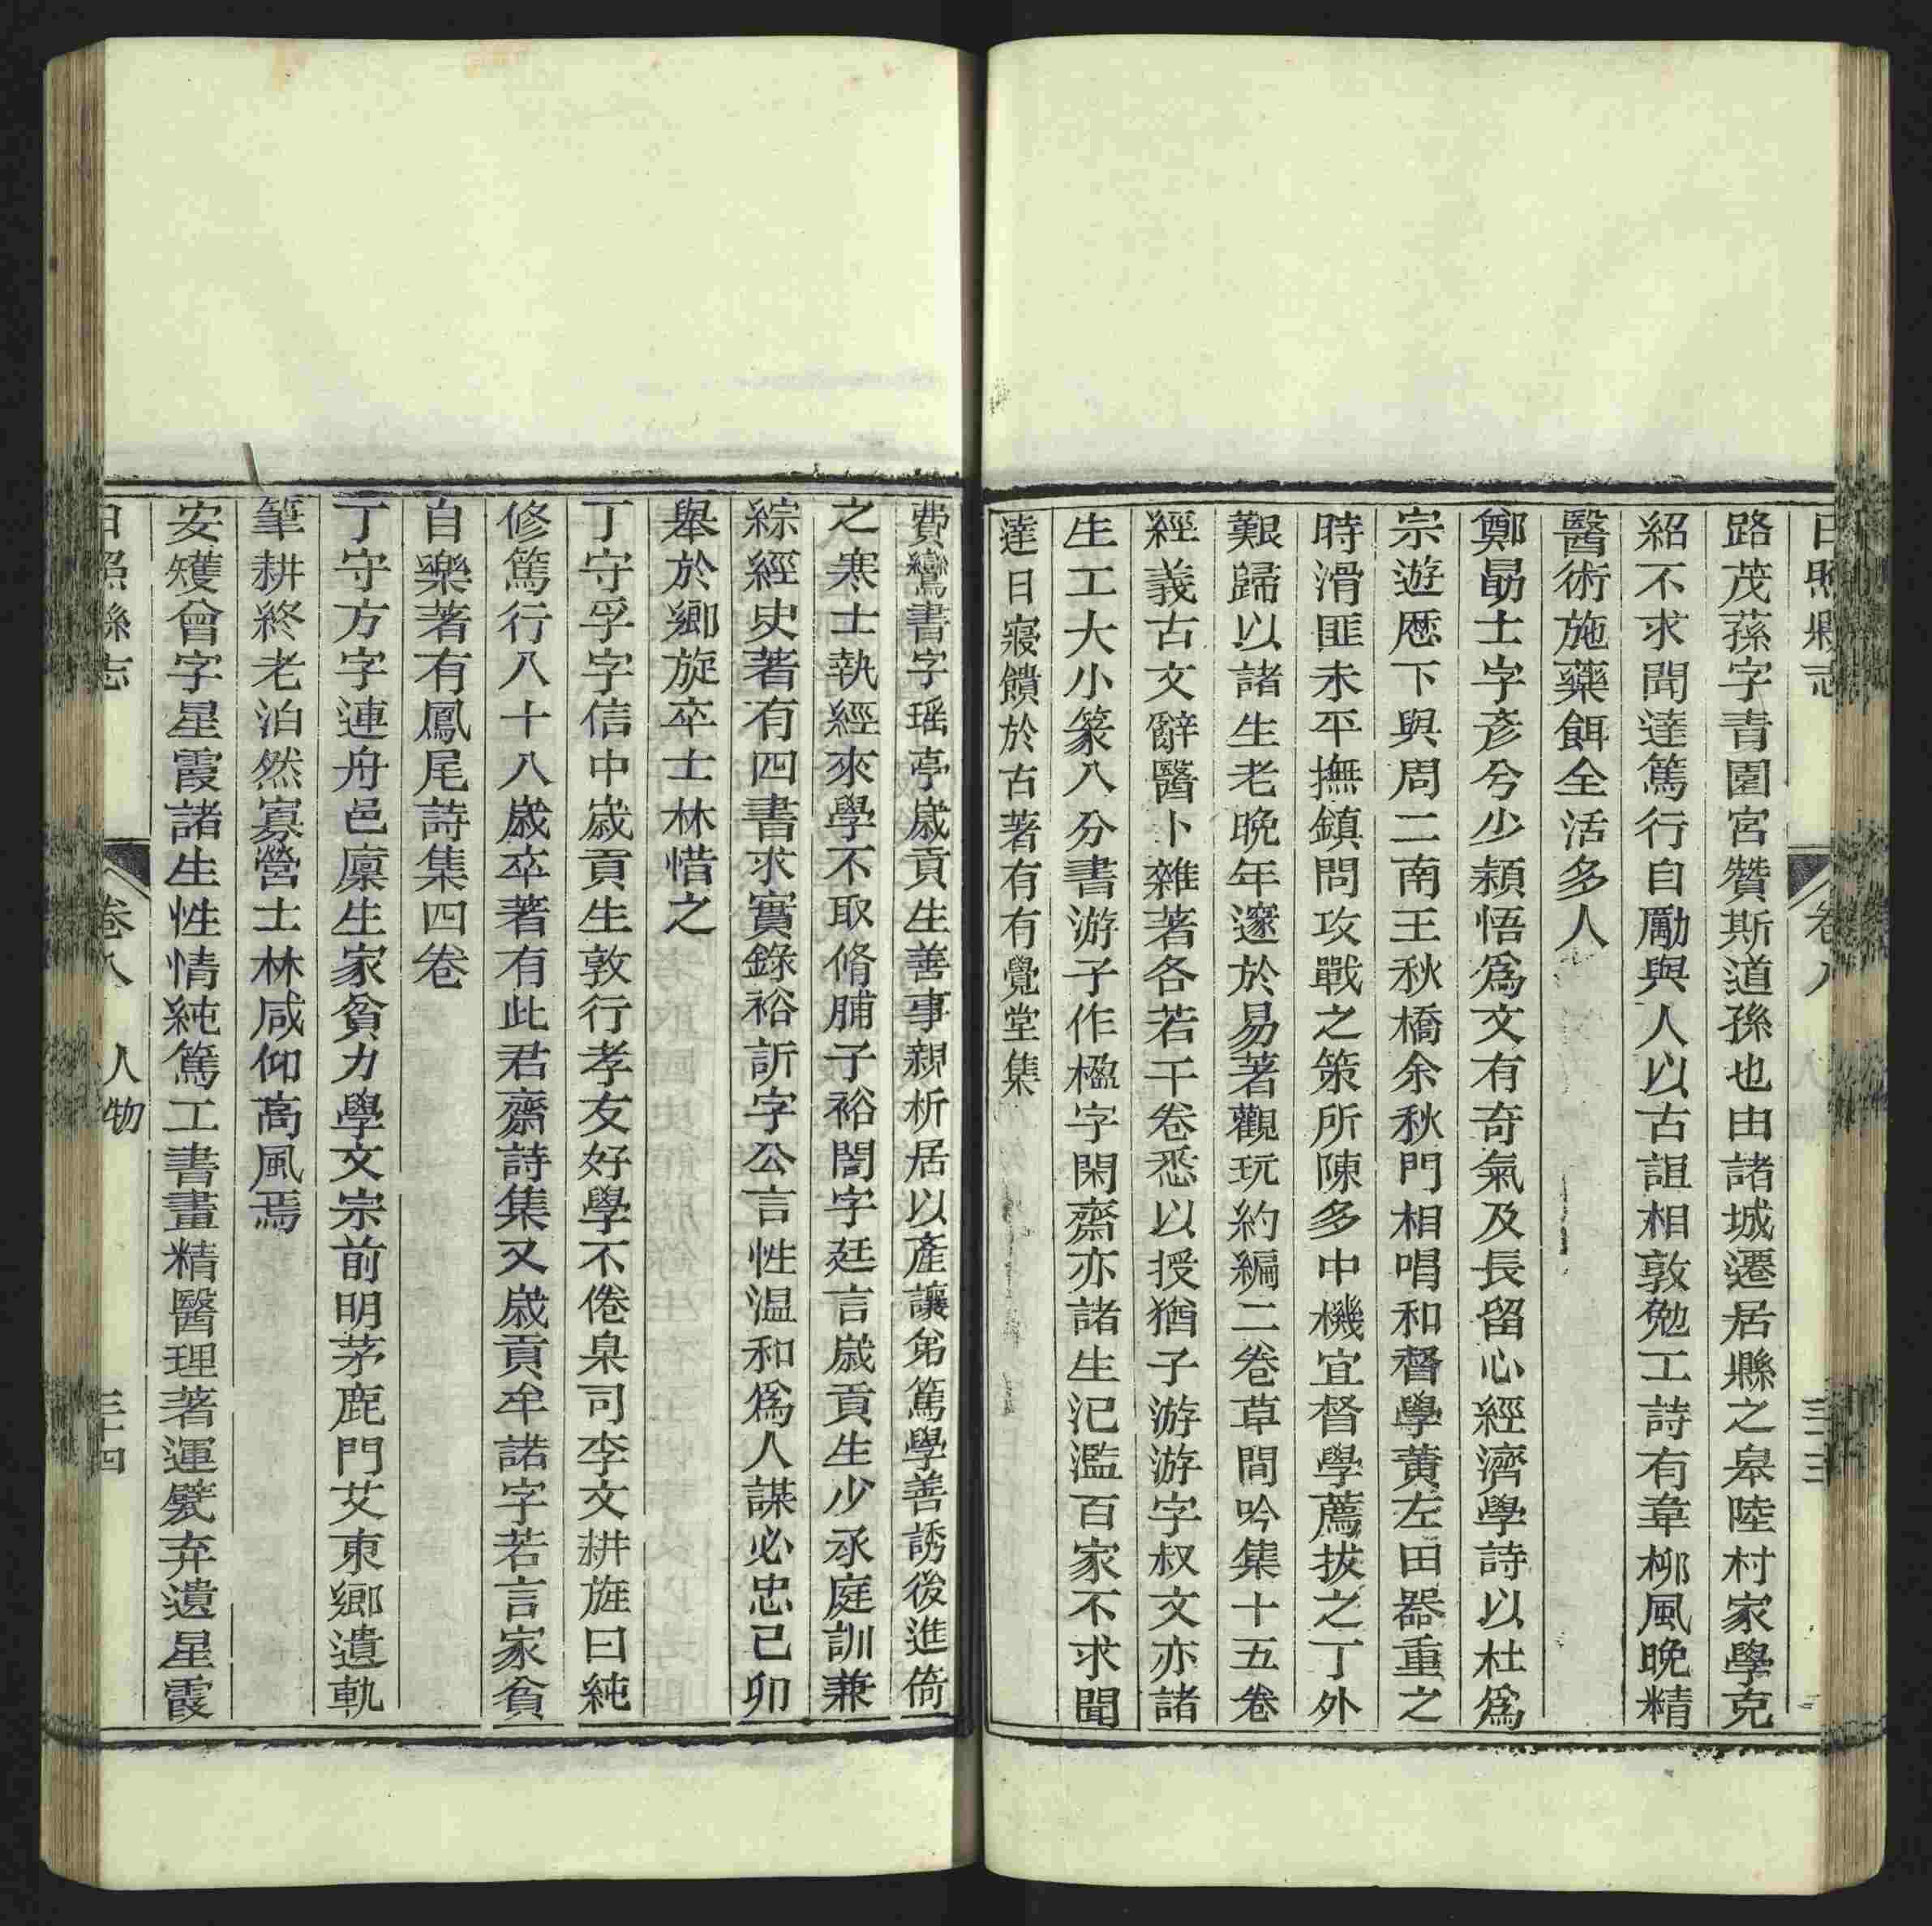 日照縣志 卷八 三十三
路茂蓀字青園宮贊斯道孫也由諸城遷居縣之皋陸村家學克
紹不求聞達篤行自勵與人以古誼相敦勉工詩有韋柳風晚精
醫術施藥餌全活多人
鄭勗士字彥兮少穎悟爲文有奇氣及長留心經濟學詩以杜爲
宗遊歷下與周二南王秋橋余秋門相唱和督學黃左田器重之
時滑匪未平撫鎮問攻戰之策所陳多中機宜督學薦拔之丁外
艱歸以諸生老晚年邃於易著觀玩約編二卷草間吟集十五卷
經義古文辭醫卜雜著各若干卷悉以授猶子游游字叔文亦諸
生工大小篆八分書游子作楹字閑齋亦諸生氾濫百家不求聞
達日寢饋於古著有有覺堂集
費鸞書字瑶亭歲貢生善事親析居以產讓弟篤學善誘後進倚
之寒士執經來學不取脩脯子裕誾字廷言歲貢生少承庭訓兼
綜經史著有四書求實錄裕訢字公言性温和爲人謀必忠己卯
舉於鄉旋卒士林惜之
丁守孚字信中歲貢生敦行孝友好學不倦臬司李文耕旌曰純
修篤行八十八歲卒著有此君齋詩集又歲貢牟諾字若言家貧
自樂著有鳳尾詩集四卷
丁守方字連舟邑廩生家貧力學文宗前明茅鹿門艾東鄉遺軌
筆耕終老泊然寡營士林咸仰高風焉
安矱曾字星霞諸生性情純篤工書畫精醫理著運甓弃遺星霞
日照縣志 卷八 人物 三十四